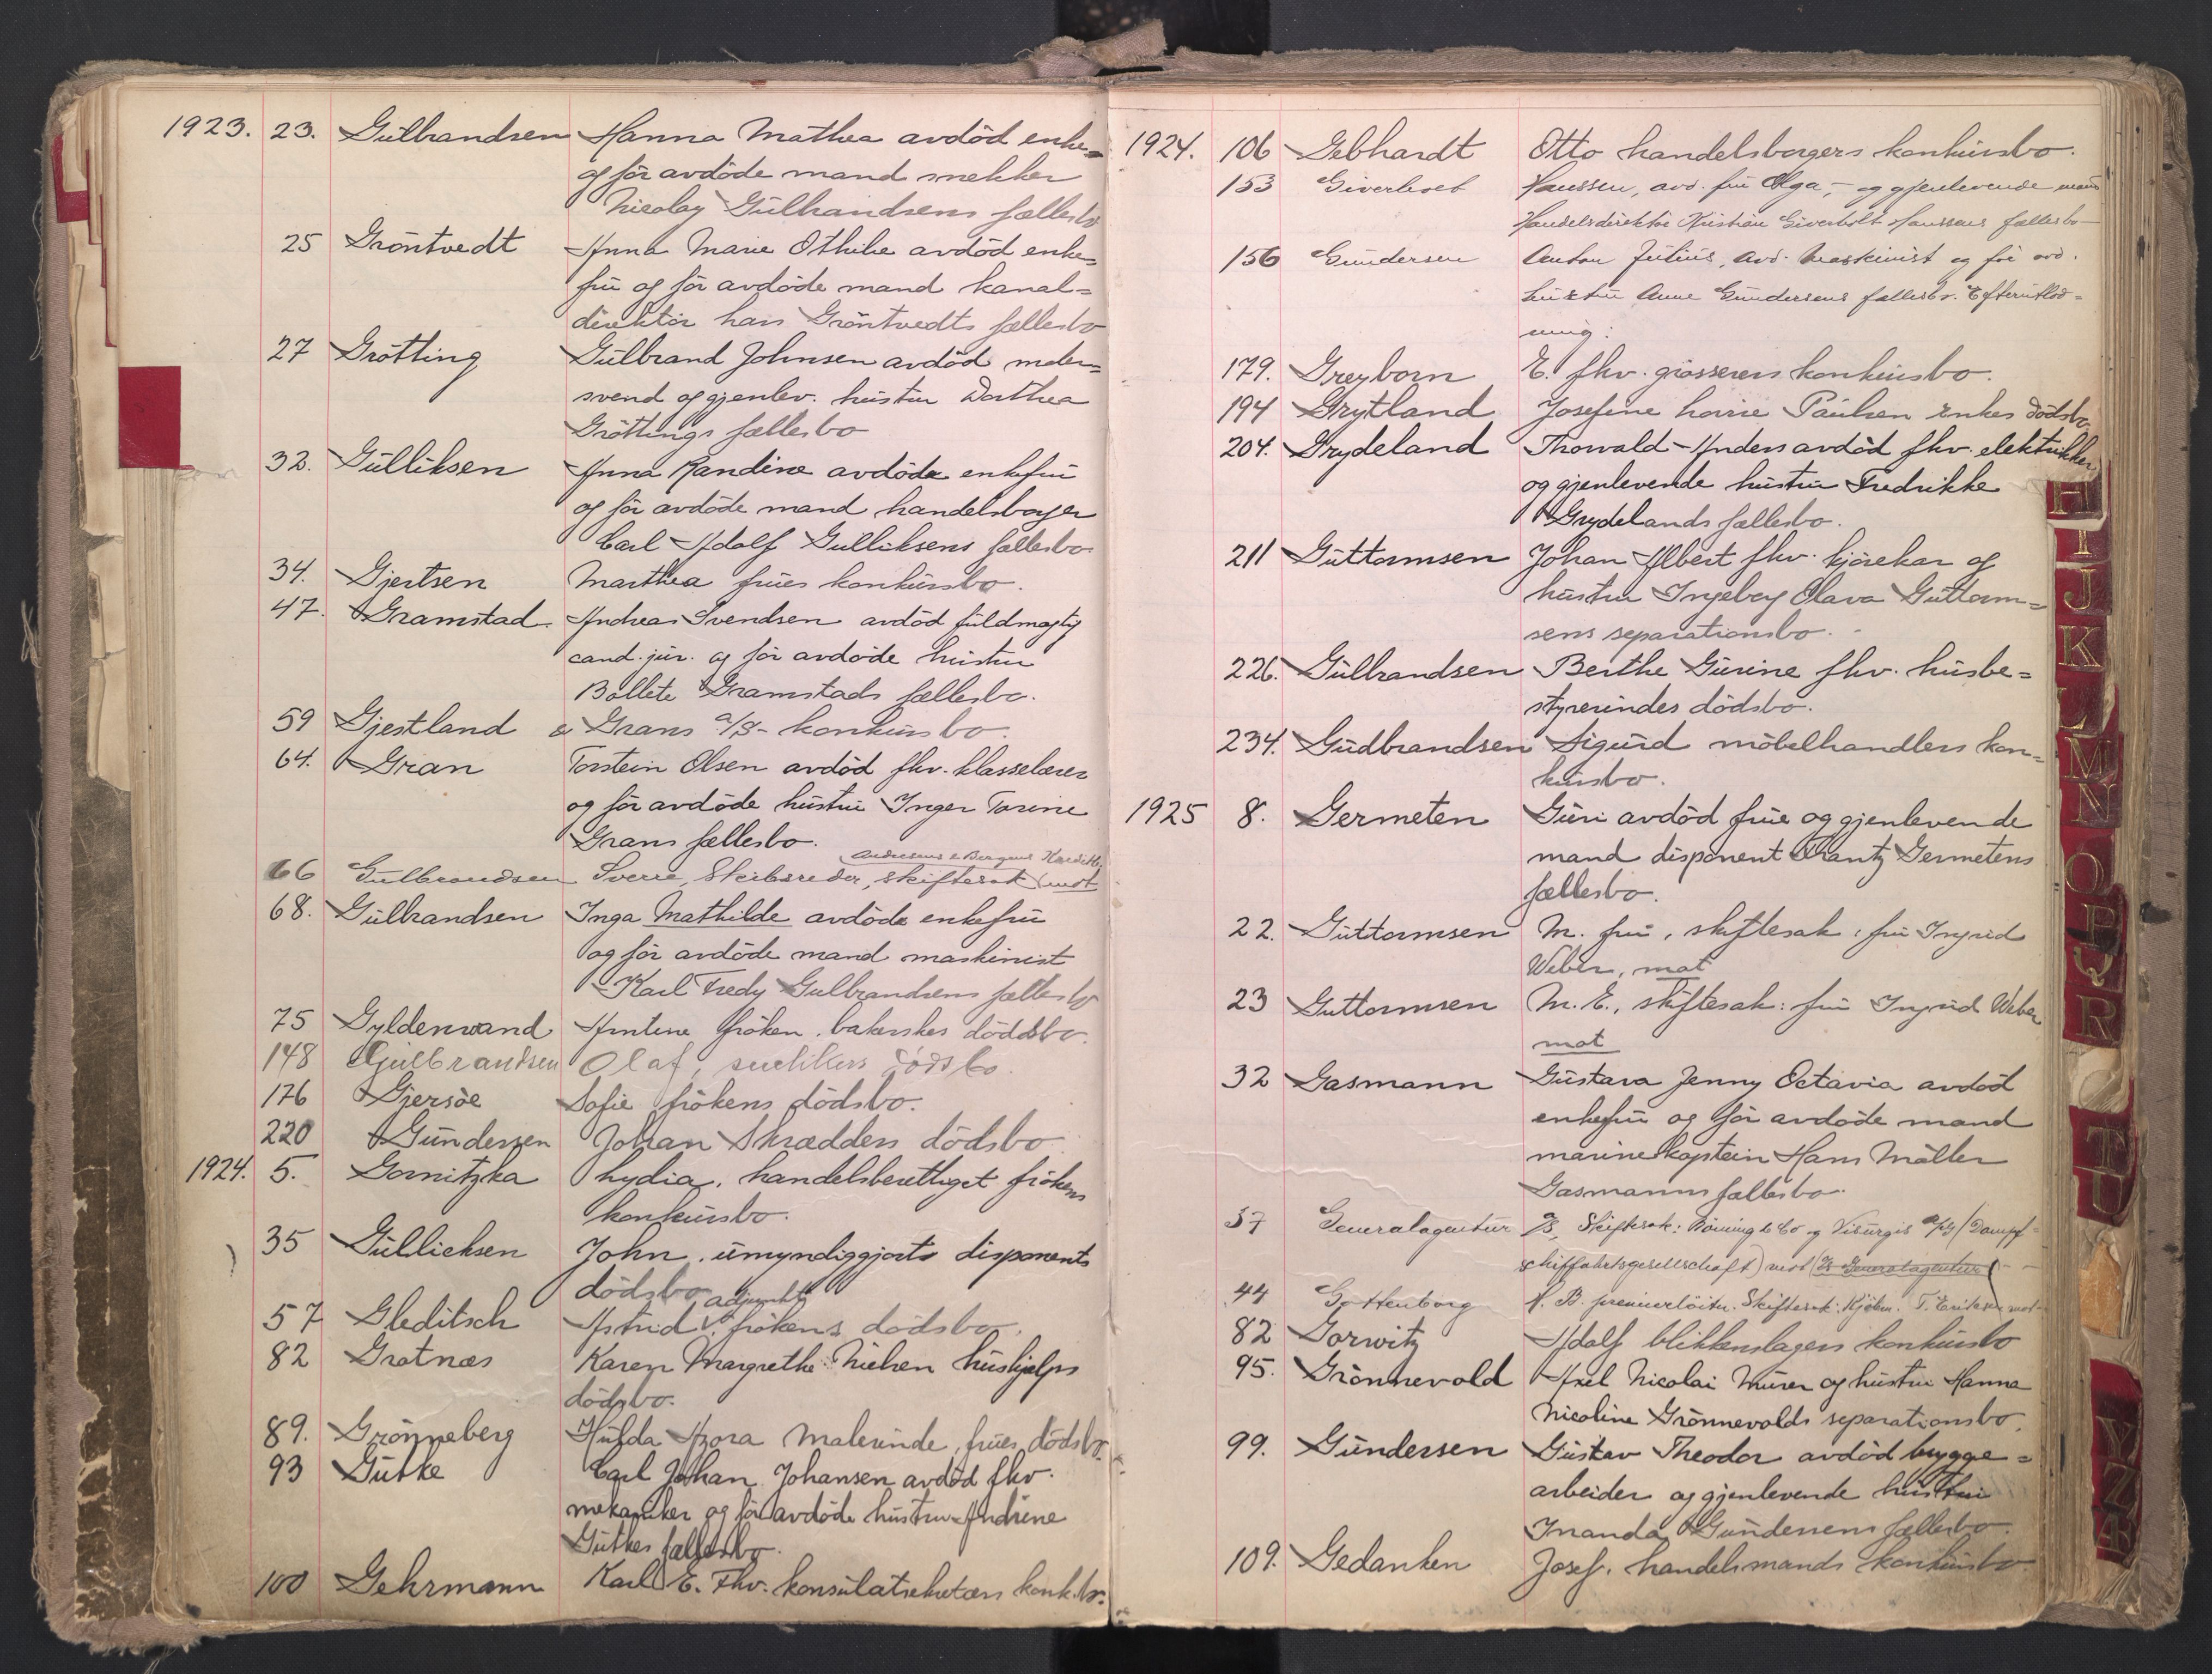 1923. 23. Gulbrandsen Hanna Mathea avdöd enke-
og för avdöde mand snekker
Nicolay Gulbrandsens fællesbo
25 Gröntvedt Anna Marie Othilie avdöd enke=
fru og för avdöde mand kanal=
direktör hans Gröntvedts fællesbo
27 Grötting Gulbrand Johnsen avdöd maler=
svend og gjenlev. hustru Dorthea
Gröttings fællesbo
32. Gulliksen Anna Randine avdöde enkefru
og för avdöde mand handelsborger
Carl Adolf Gulliksens fællesbo.
34. Gjertsen Marthea frues konkursbo.
47. Gramstad Andreas Svendsen avdöd fuldmægtig
cand. jur. og för avdöde hustru
Bollete Gramstads fællesbo.
59 Gjestland & Grans a/s - konkursbo.
64. Gran Torstein Olsen avdöd fhv. klasselærer
og för avdöde hustru Inger Torine
Grans fællesbo.
Andresens & Bergens Kreditb.
66 Gulbrandsen Sverre, Skibsreder, skiftesak mot
68. Gulbrandsen Inga Mathilde avdöde enkefru
og för avdöde mand maskinist
Karl Fredy Gulbrandsens fællesbo
75 Gyldenvand Antine fröken, bakerskes dödsbo.
148 Gulbrandsen Olaf, snekkers dödsbo.
176 Gjersöe Sofie frökens dödsbo.
220 Gundersen Johan Skrædders dödsbo
1924. 5. Gornitzka Lydia, handelsberettiget frökens
konkursbo.
35 Gullicksen John, umyndiggjorts disponents
dödsbo
adjunkt
57 Gleditsch Astrid frökens dödsbo.
82 Gratnæs Karen Margrethe Nielsen hushjelps
dödsbo.
89. Grönneberg Hulda Azora Malerinde, frues, dödsbo.
93 Gutke Carl Johan Johansen avdöd fhv.
mekaniker og för avdöde hustru Andrine
Gutkes fællesbo.
100 Gehrmann Karl E. Fhv. konsulatsekretærs konk.bo.
1924. 106 Gebhardt Otto handelsborgers konkursbo.
153 Giverholt Hanssen, avd. fru Olga, - og gjenlevende mand
Handelsdirektör Kristian Giverholt Hanssens fællesbo
156 Gundersen Anton Julius, avd. maskinist og för avd.
hustru Anne Gundersens fællesbo. Efterutlod=
ning.
179. Greyborn E. fhv. grosserers konkursbo.
194 Grytland Josefine Paulsen enkes dödsbo.
204. Grydeland Thorvald Anders avdöd fhv. elektrikker
og gjenlevende hustru Fredrikke
Grydelands fællesbo.
211 Guttormsen Johan Albert fhv. kjörekar og
hustru Ingeborg Olava Guttorm=
sens separationsbo.
226. Gulbrandsen Berthe Gurine fhv. husbe=
styrerindes dödsbo.
234. Gudbrandsen Sigurd möbelhandlers kon=
kursbo.
1925 8. Germeten Guri avdöd frue og gjenlevende
mand disponent Frantz Germetens
fællesbo.
22. Guttormsen M. fru, skiftesak: fru Ingrid
Weber, mot
23 Guttormsen M. E., skiftesak: fru Ingrid Weber
mot
32 Gasmann Gustava Jenny Octavia avdöd
enkefru og för avdöde mand
marinekaptein Hans Möller
Gasmanns fællesbo.
37 Generalagentur A/S, Skiftesak: Böning & Co og Visurgis A/G (Dampf=
schiffahrtsgesellschaft) mot A/S Generalagentur
44 Gottenborg H. B. premierlöitn. Skiftesak: Kjöbm. T. Eriksen mot
82 Gorwitz Adolf blikkenslagers konkursbo
95. Grönnevold Axel Nicolai Murer og hustru Hanna
Nicoline Grönnevolds separationsbo.
99. Gundersen Gustav Theodor avdöd brygge=
arbeider og gjenlevende hustru
Inanda Gundersens fællesbo.
109. Gedanken Josef. handelsmands konkursbo
H
I
J
K
L
M
N
O
P
Q
R
T
U